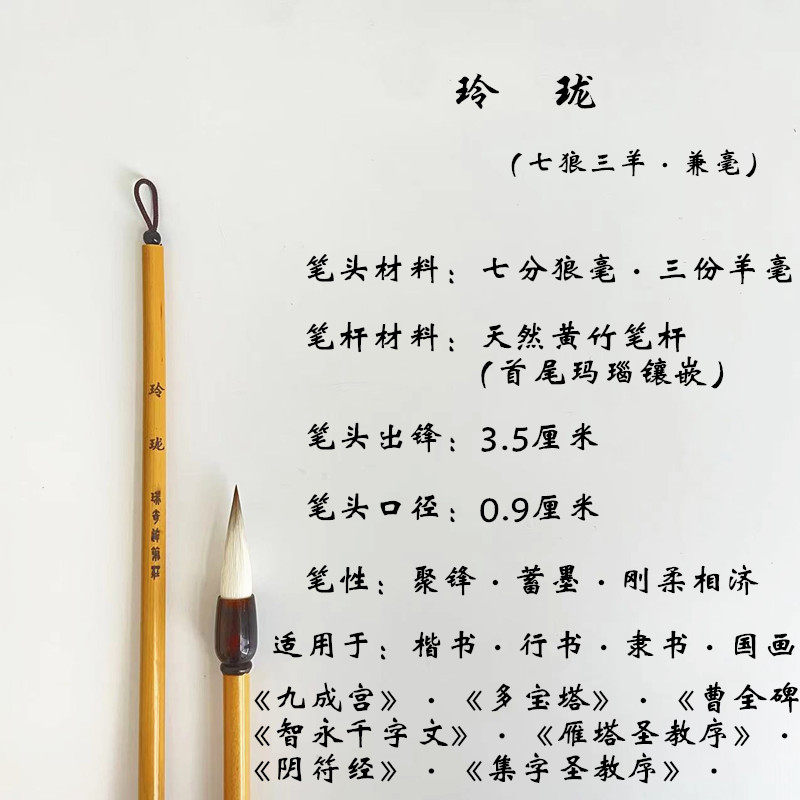 玲 珑
（七狼三羊·兼毫）
笔头材料：七分狼毫·三份羊毫
笔杆材料：天然黄竹笔杆
（首尾玛瑙镶嵌）
笔头出锋：3.5厘米
笔头口径：0.9厘米
笔性：聚锋·蓄墨·刚柔相济
适用于：楷书·行书·隶书·国画
《九成宫》·《多宝塔》·《曹全碑
《智永千字文》·《雁塔圣教序》·
《阴符经》·《集字圣教序》·
玲珑